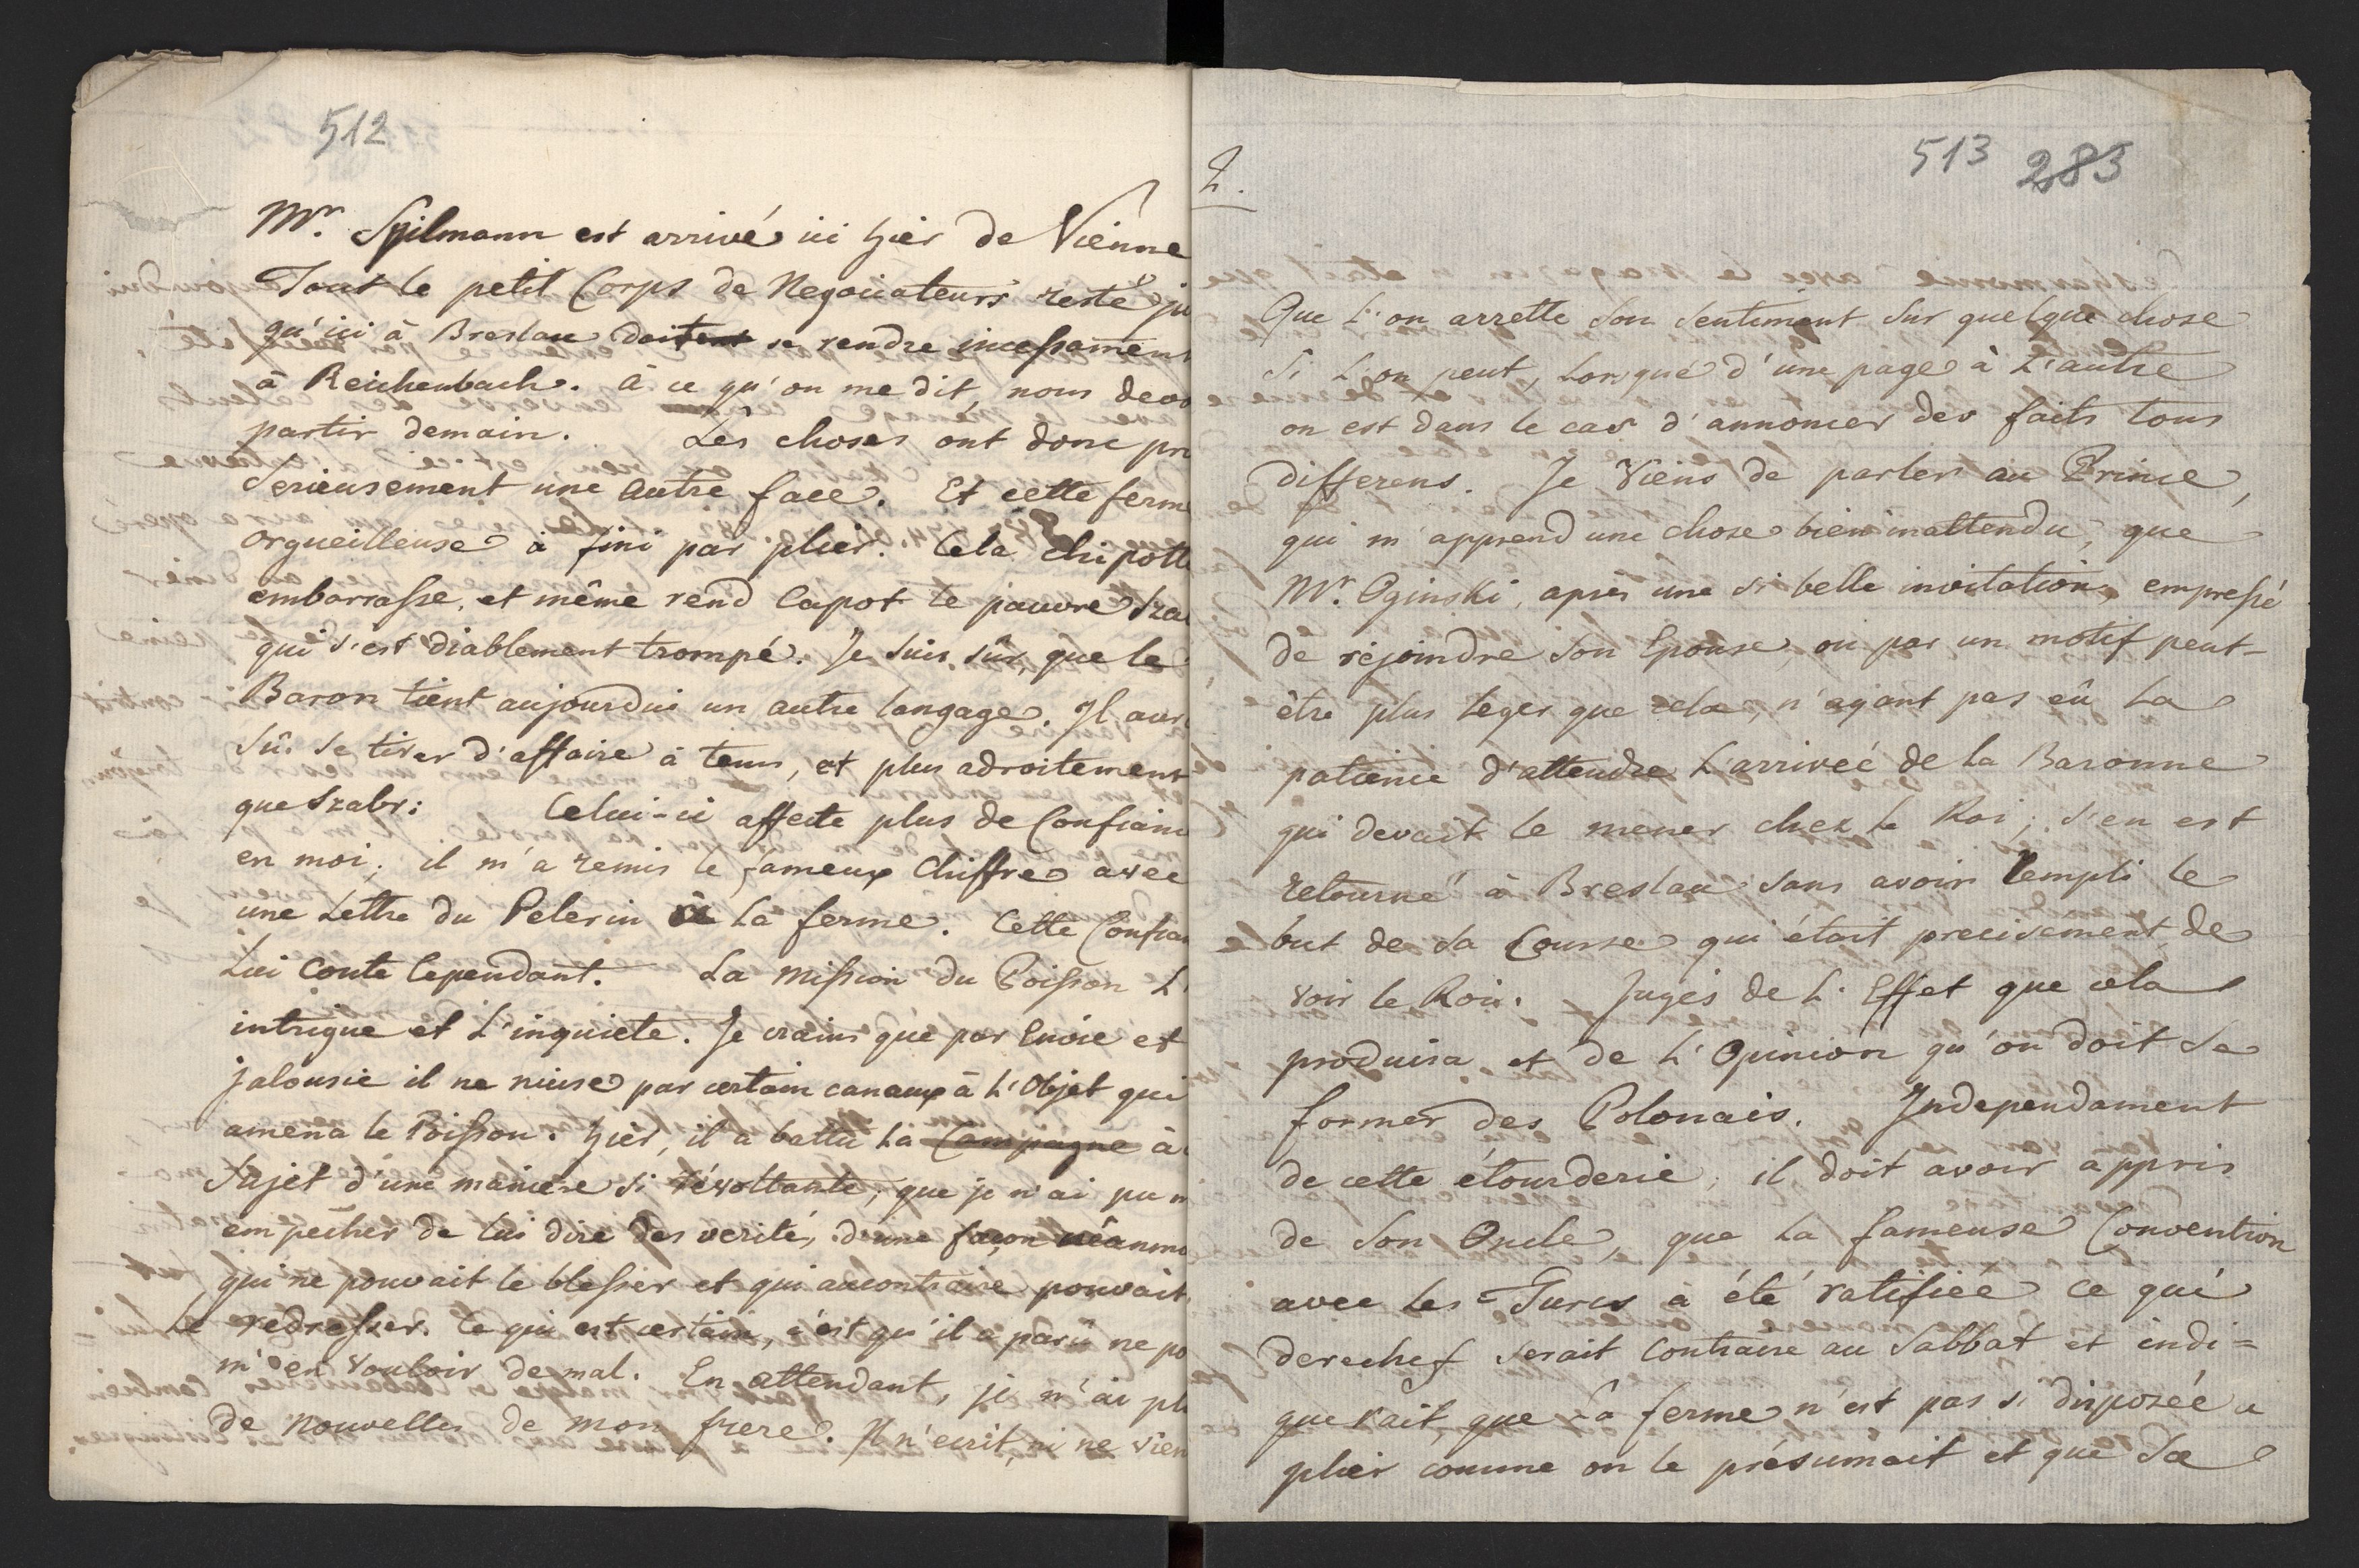 512
Mr. Spilmann est arrivé ici hier de Vienne
Tout le petit Corps de Negociateurs resté ju
qu'ici à Breslau doitent se rendre incessament
à Reichenbach. à ce qu'on me dit, nous devo
partir demain. Les choses ont donc pri
serieusement une autre face. Et cette ferme
orgueilleuse à fini par plier. Cela chipotte
embarrasse, et même rend Capot le pauvre Sza
qui s'est diablement trompé. Je suis sûr, que le
Baron tient aujourdui un autre langage. Il aur
sû se tirer d'affaire à tems, et plus adroitement
que Szabr: Celui-ci affecte plus de Confian
en moi; il m'a remis le fameux Chiffre avec
une Lettre du Pelerin à la ferme. Cette Confian
Lui Coute Cependant. La Mission du Poisson L'
intrigue et L'inquiete. Je crains que par Envie et
jalousie il ne niuse par certain canaux à L'Objet qui
amena le Poisson. hier, il a battu la Campagne à
Sujet d'une maniere si révoltante, que je n'ai pu m
empecher de lui dire des verité, d'une façon néanmo
qui ne pouvait le blesser et qui aucontraire pouvait
le redresser. Ce qui est certain, c'est qu'il a parû ne po
m'en Vouloir de mal. En attendant, je n'ai pl
de Nouvelles de mon frere. Il n'ecrit, ni ne vien
513 283
2.
Que L'on arrette son sentiment sur quelque chose
si L'on peut, Lorsque d'une page à L'autre
on est dans le cas d'annoncer des faits tous
differens. Je viens de parler au Prince,
qui m'apprend une chose bien inattendu, que
Mr. Oginski, après une si belle invitation, empressé
de rejoindre son Epouse ou par un motif peut-
être plus leger que cela, n'ayant pas eû la
patience d'attendre L'arriveé de la Baronne
qui devait le mener chez le Roi, s'en est
retourné à Breslau sans avoir rempli le
but de sa Course qui était precisement de
voir le Roi. Jugés de L'Effet que cela
produira et de L'Opinion qu'on doit se
former des Polonais. Independament
de cette étourderie, il doit avoir appris
de son Oncle, que la fameuse Convention
avec les Turcs a été ratifiée ce qui
derechef serait Contraire au Sabbat et indi=
querait, que la ferme n'est pas si disposée a
plier comme on le présumait et que sa